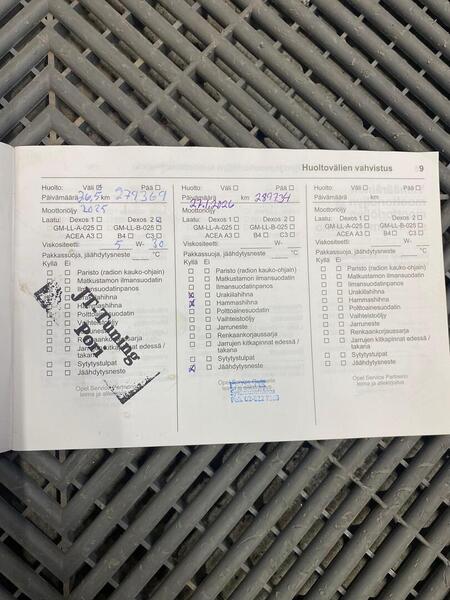 Huoltovälien vahvistus 9
Huolto: Väli Pää
Päivämäärä 26,5 km 279369
Moottoriöljy 2025
Laatu: Dexos 1 Dexos 2
GM-LL-A-025 GM-LL-B-025
ACEA A3 B4 C3
Viskositeetti 5 W- 30
Pakkassuoja, jäähdytysneste °C
Kyllä Ei
Paristo (radion kauko-ohjain)
Matkustamon ilmansuodatin
Ilmansuodatinpanos
Urakiilahihna
Hammashihna
Polttoainesuodatin
Vaihteistoöljy
Jarruneste
Renkaankorjaussarja
Jarrujen kitkapinnat edessä /
takana
Sytytystulpat
Jäähdytysneste
Opel Service Partnerin
leima ja allekirjoitus
JT-Tuning
Pori
Huolto: Väli Pää
Päivämäärä 27.1.2026 km 289734
Moottoriöljy
Laatu: Dexos 1 Dexos 2
GM-LL-A-025 GM-LL-B-025
ACEA A3 B4 C3
Viskositeetti W-
Pakkassuoja, jäähdytysneste °C
Kyllä Ei
Paristo (radion kauko-ohjain)
Matkustamon ilmansuodatin
Ilmansuodatinpanos
Urakiilahihna
Hammashihna
Polttoainesuodatin
Vaihteistoöljy
Jarruneste
Renkaankorjaussarja
Jarrujen kitkapinnat edessä /
takana
Sytytystulpat
Jäähdytysneste
Huolto: Väli Pää
Päivämäärä km
Moottoriöljy
Laatu: Dexos 1 Dexos 2
GM-LL-A-025 GM-LL-B-025
ACEA A3 B4 C3
Viskositeetti W-
Pakkassuoja, jäähdytysneste °C
Kyllä Ei
Paristo (radion kauko-ohjain)
Matkustamon ilmansuodatin
Ilmansuodatinpanos
Urakiilahihna
Hammashihna
Polttoainesuodatin
Vaihteistoöljy
Jarruneste
Renkaankorjaussarja
Jarrujen kitkapinnat edessä /
takana
Sytytystulpat
Jäähdytysneste
Opel Service Partnerin
leima ja allekirjoitus